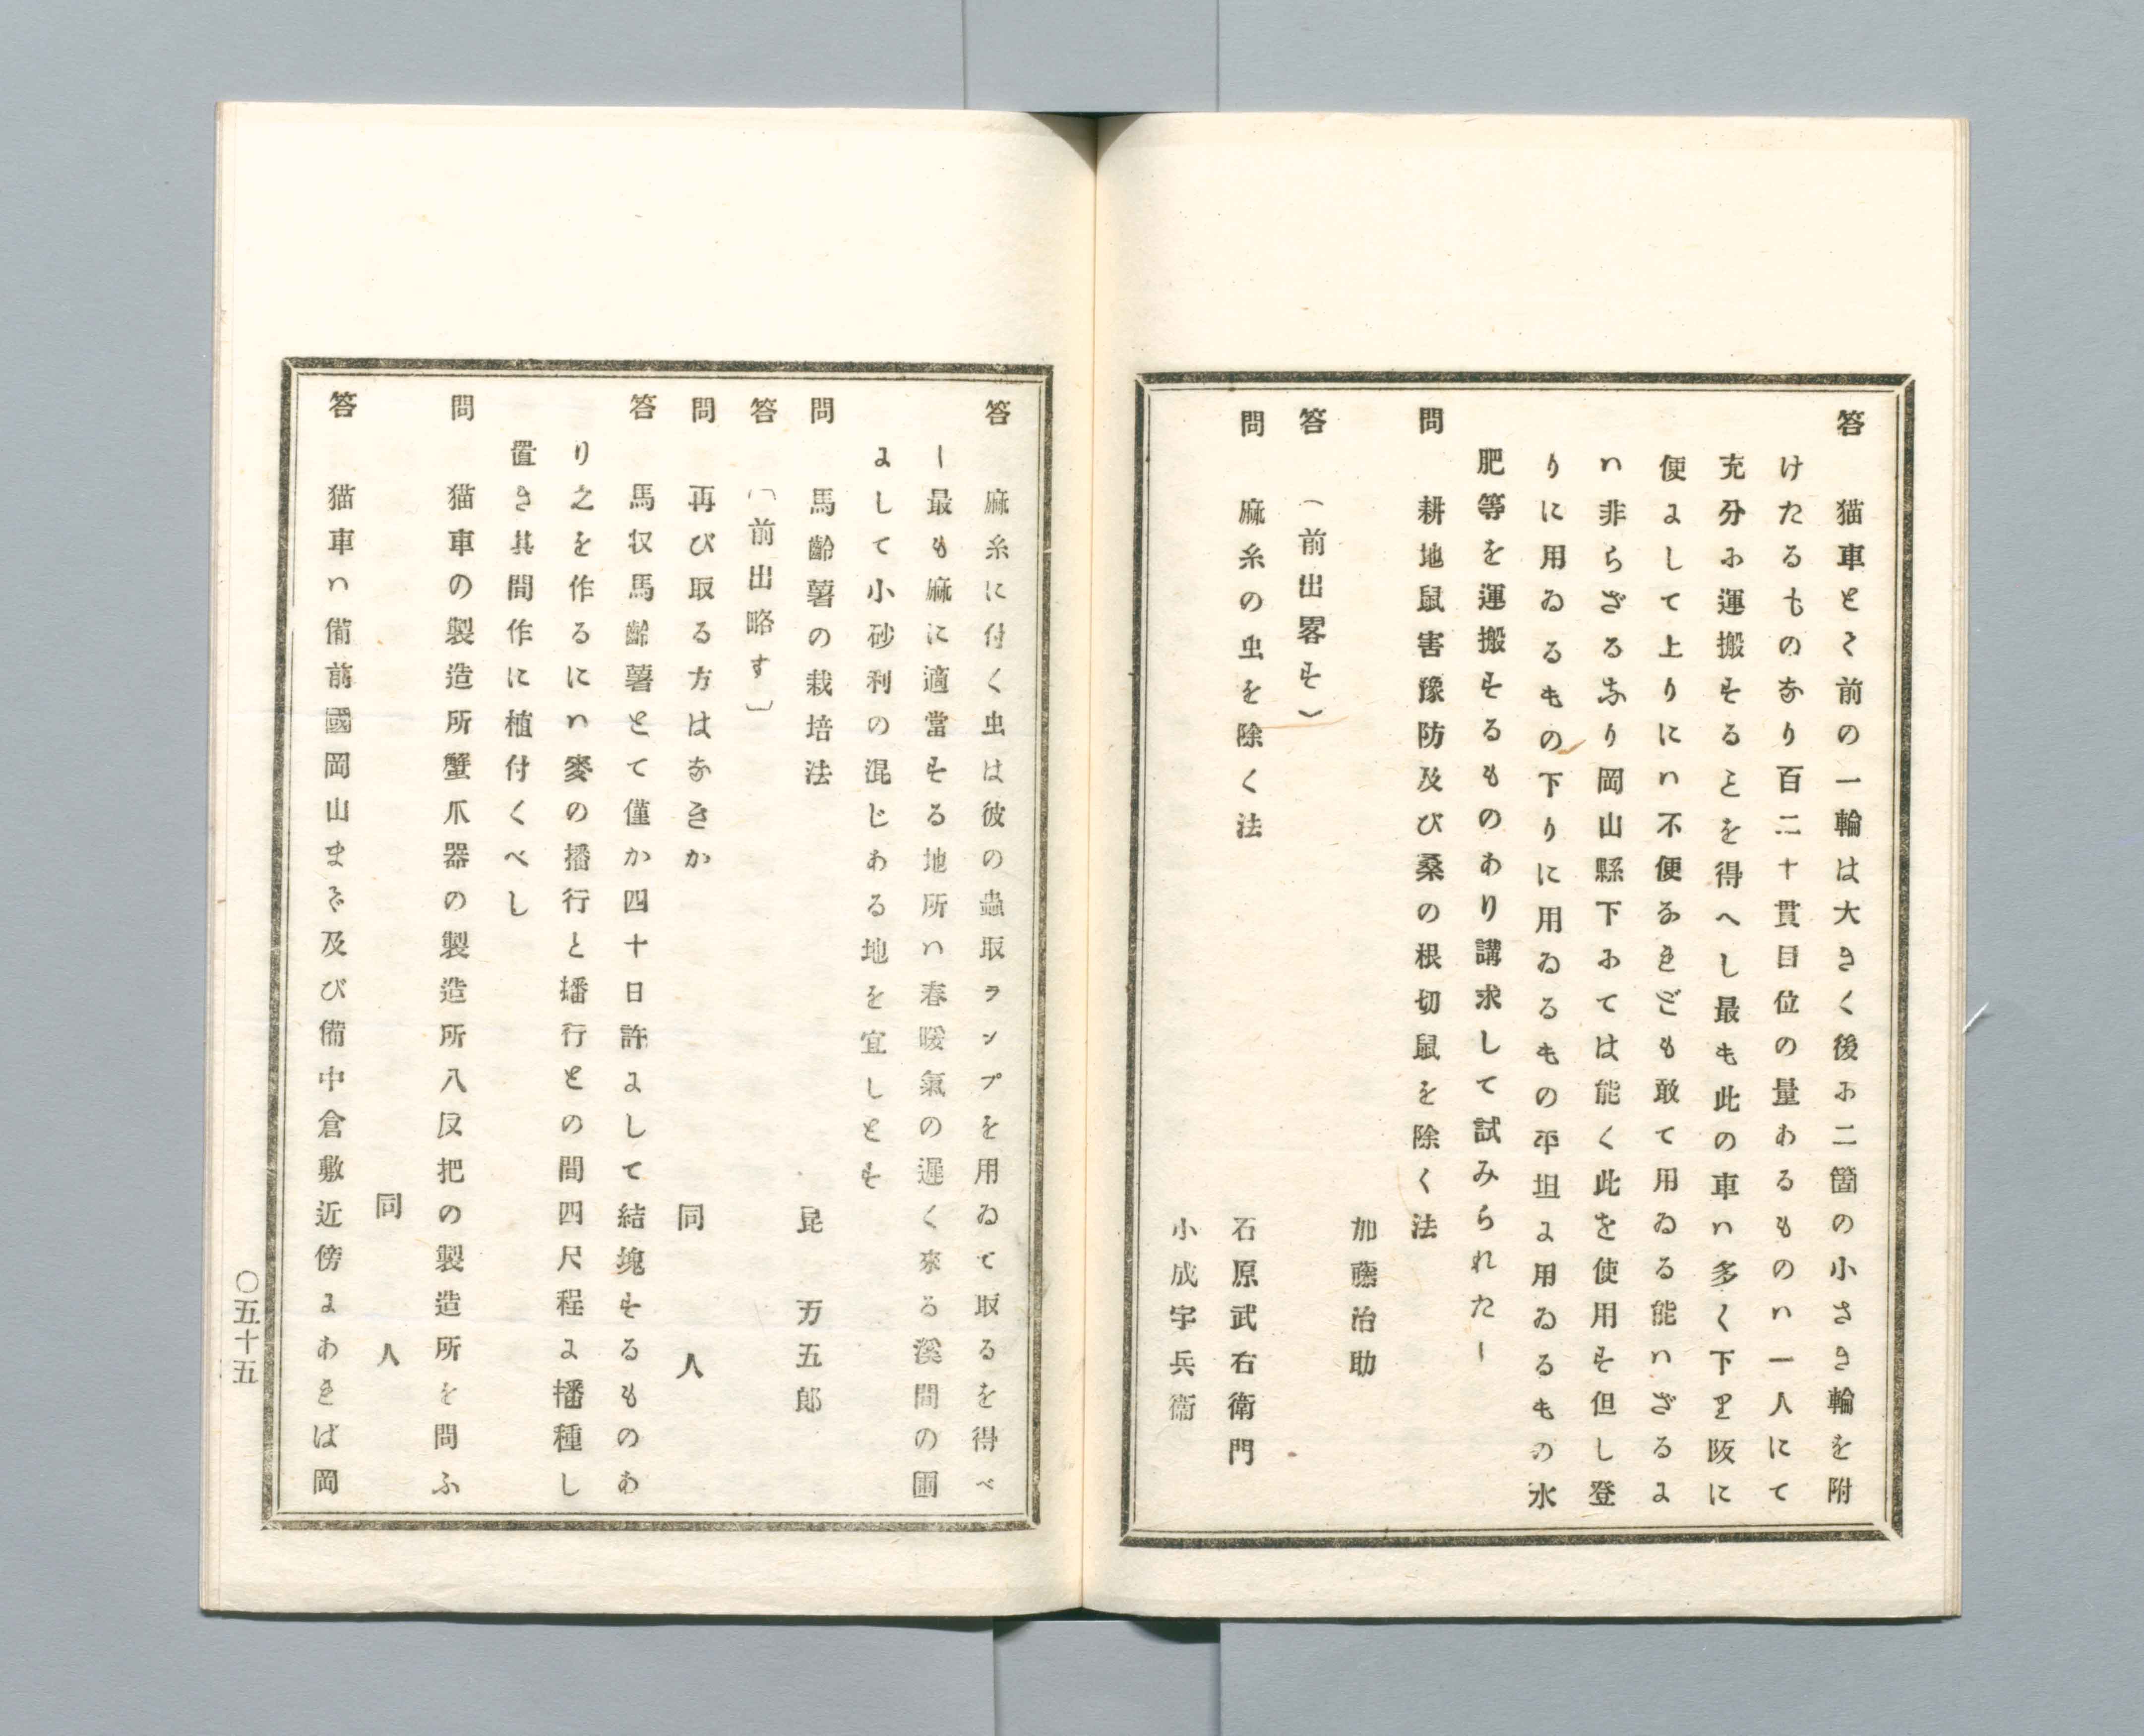 答　猫車とく前の一輪は大きく後に二箇の小さき輪を附
けたるものなり百二十貫目位の量あるものハ一人にて
充分に運搬するとを得へし最も此の車ハ多く下り阪に
便よして上りにハ不便なれども敢て用ゐる能ハざるよ
ハ非らざるなり岡山縣下にては能く此を使用す但し登
りに用ゐるもの下りに用ゐるもの平坦よ用ゐるもの水
肥等を運搬するものあり講求して試みられたし
問　耕地鼠害豫防及び桑の根切鼠を除く法
加藤治助
答　（前出畧す）
問　麻糸の虫を除く法
石原武右衛門
小成宇兵衞
答　麻糸に付く虫は彼の蟲取ランプを用ゐて取るを得べ
し最も麻に適當する地所ハ春暖氣の遲く來る溪間の圃
よして小砂利の混じある地を宜しとす
問　馬齡薯の栽培法
昆　万五郎
答　（前出略す）
問　再び取る方はなきか
同　人
答　馬収馬齡薯とて僅か四十日許よして結塊するものあ
り之を作るにハ麥の播行と播行との間四尺程よ播種し
置き其間作に植付くべし
問　猫車の製造所蟹爪器の製造所八反把の製造所を問ふ
同　人
答　猫車ハ備前國岡山まで及び備中倉敷近傍よあれば岡
〇五十五